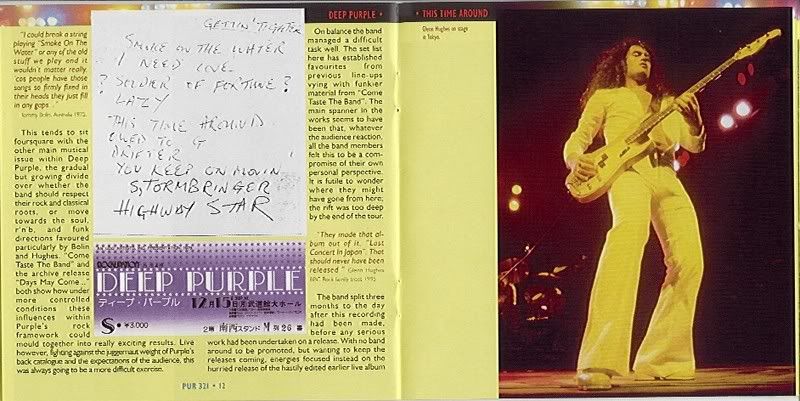 DEEP PURPLE •
• THIS TIME AROUND
"I could break a string
playing "Smoke On The
Water" or any of the old
stuff we play and it
wouldn't matter really,
'cos people have those
songs so firmly fixed in
their heads they just fill
in any gaps..."
Tommy Bolin, Australia 1975.
This tends to sit
foursquare with the
other main musical
issue within Deep
Purple, the gradual
but growing divide
over whether the
band should respect
their rock and classical
roots, or move
towards the soul,
r'n'b, and funk
directions favoured
particularly by Bolin
and Hughes. "Come
Taste The Band" and
the archive release
"Days May Come.."
both show how under
more controlled
conditions these
influences within
Purple's rock
framework could
mould together into really exciting results. Live
however, fighting against the juggernaut weight of Purple's
back catalogue and the expectations of the audience, this
was always going to be a more difficult exercise.
GETTIN' TIGHTER
SMOKE ON THE WATER
I NEED LOVE
? SOLDIER OF FORTUNE ?
LAZY
THIS TIME AROUND
OWED TO G
DRIFTER
YOU KEEP ON MOVIN
STORMBRINGER
HIGHWAY STAR
DEEP PURPLE
ディープ・パープル
12月15日月武道館大ホール
S• ¥3,000
2階 南西スタンド M列26番
On balance the band
managed a difficult
task well. The set list
here has established
favourites from
previous line-ups
vying with funkier
material from "Come
Taste The Band". The
main spanner in the
works seems to have
been that, whatever
the audience reaction,
all the band members
felt this to be a com-
promise of their own
personal perspective.
It is futile to wonder
where they might
have gone from here;
the rift was too deep
by the end of the tour.
"They made that al-
bum out of it, "Last
Concert In Japan". That
should never have been
released" Glenn Hughes
BBC Rock family trees 1995.
The band split three
months to the day
after this recording
had been made,
before any serious
work had been undertaken on a release. With no band
around to be promoted, but wanting to keep the
releases coming, energies focused instead on the
hurried release of the hastily edited earlier live album
PUR 321 • 12
Glenn Hughes on stage
in Tokyo.